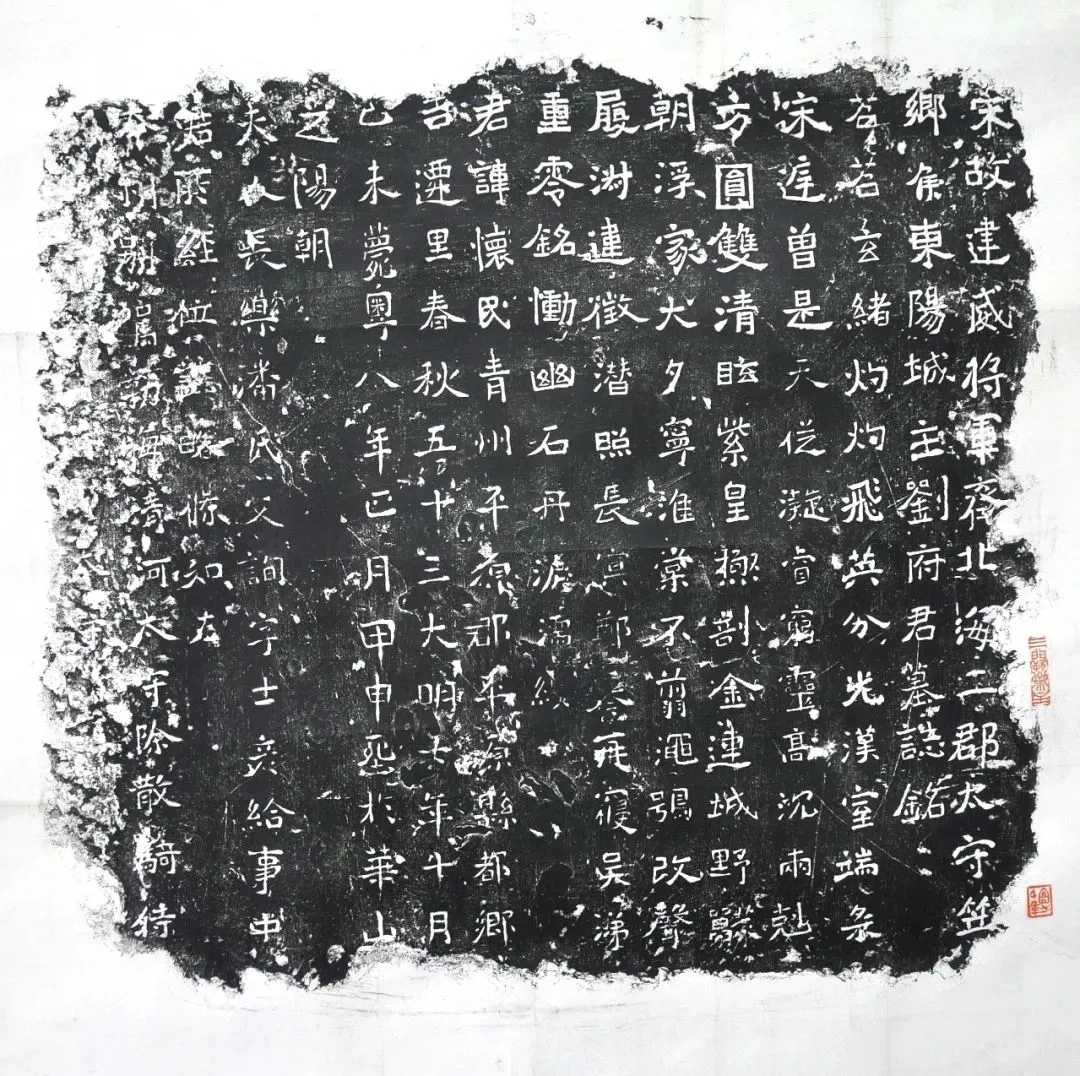 宋故建威將軍齊北海二郡太守笠
鄉侯東陽城主劉府君墓誌銘
苕苕玄緒灼灼飛英分光漢室端錄
宋庭曾是天從凝睿窮靈高沉兩剋
方圓雙清眩紫皇極剖金連城野獸
朝浮家犬夕寧淮棠不翦澠鴞改聲
履淵違徵潛照長冥鄭琴再寢吳涕
重零銘慟幽石丹淚濡纓
君諱懷民青州平原郡平原縣都鄉
吉遷里春秋五十三大明七年十月
己未薨粵八年正月甲申葬於華山
之陽朝
夫人長樂潘氏父詢字士彥給事中
君所經位誌略條如左
本州別駕 清河太守除散騎侍